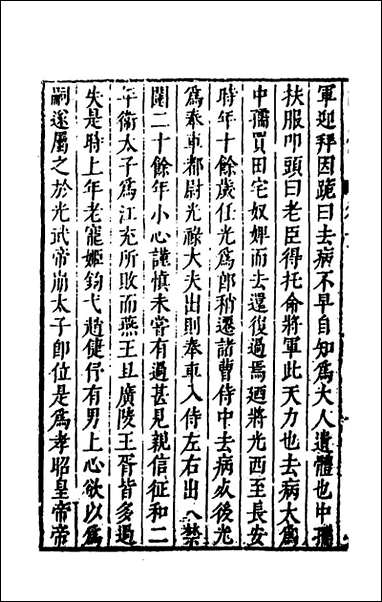 軍迎拜因跪曰去病不早自知爲大人遺體也中孺
扶服叩頭曰老臣得托命將軍此天力也去病大爲
中孺買田宅奴婢而去還復過焉廼將光西至長安
時年十餘歲任光爲郎稍遷諸曹侍中去病死後光
爲奉車都尉光祿大夫出則奉車入侍左右出入禁
闥二十餘年小心謹慎未嘗有過甚見親信征和二
年衛太子爲江充所敗而燕王旦廣陵王胥皆多過
失是時上年老寵姬鉤弋趙倢伃有男上心欲以爲
嗣遂屬之於光武帝崩太子卽位是爲孝昭皇帝帝